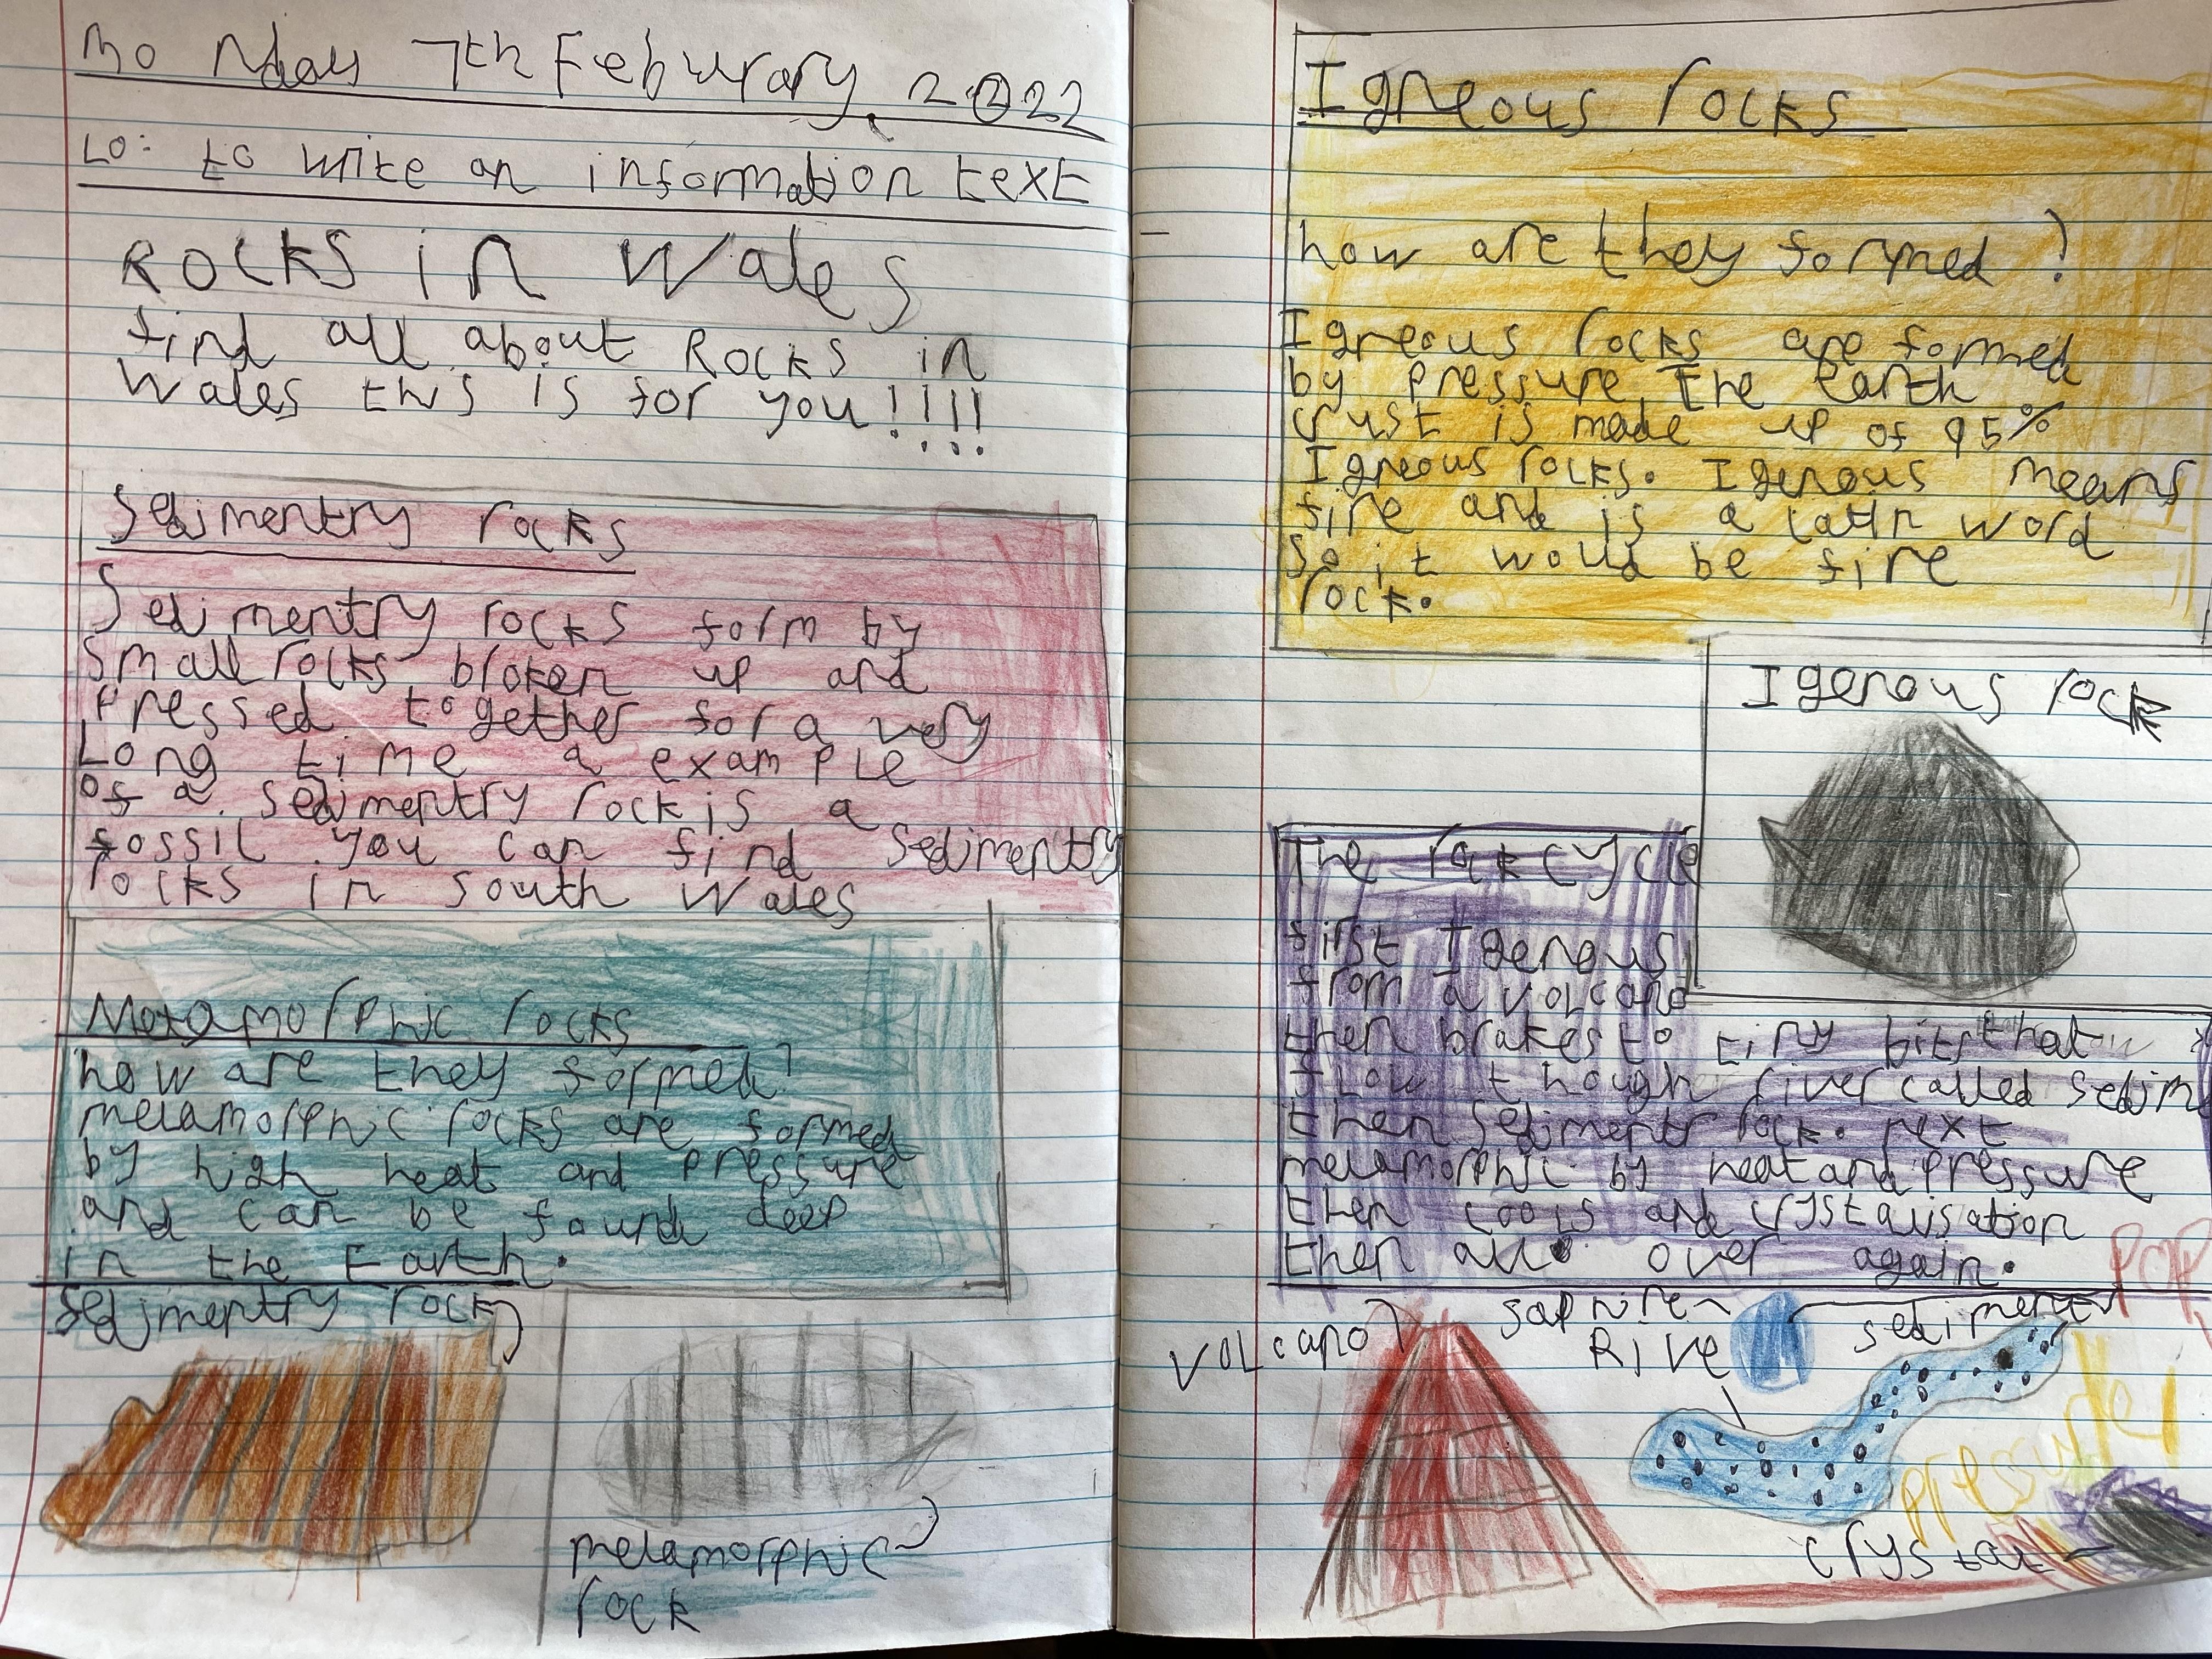 Monday 7th Feburary 2022
LO: to write an information text
Rocks in Wales
find all about Rocks in
Wales this is for you!!!!
Sedimentry rocks
Sedimentry rocks form by
small rocks broken up and
Pressed together for a very
Long time a example
of a sedimentry rock is a
fossil you can find sedimentry
rocks in south Wales
Metamorphic rocks
how are they formed?
melamorphic rocks are formed
by high heat and pressure
and can be found deep
in the Earth.
Sedimentry rock
melamorphic
rock
Igneous rocks
how are they formed?
Igneous rocks are formed
by Pressure, The Earth
crust is made up of 95%
Igneous rocks. Igenous means
fire and is a latin word
so it would be fire
rock.
Igenous rock
The rock cycle
first Igenous
from a volcano
then brakes to tiny bits that
flow though river called sedim
then Sedimentr rock. next
melamorphic by heat and pressure
then cools and crystalisation
then all over again.
POP
volcano
saphire
Rive
sediment
Pressure
crystal